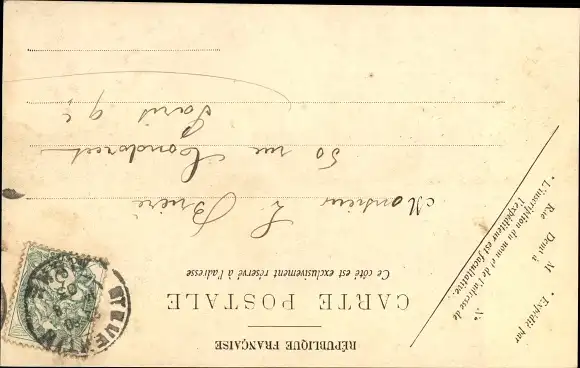 RÉPUBLIQUE FRANÇAISE
CARTE POSTALE
Ce côté est exclusivement réservé à l'adresse
* Expédié par
M
Demt à
Rue Nº
* L'inscription du nom et de l'adresse de
l'expéditeur est facultative.
Monsieur L. Brière
50 rue Condorcet
Paris 9e
QUENTIN